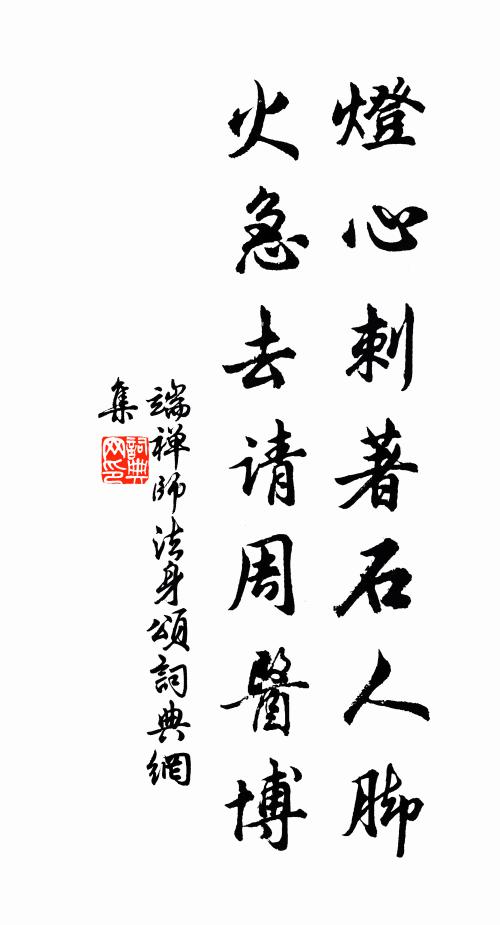 燈心刺著石人脚
火急去请周醫博
端禅师法身頌詞典網
集
詞典網印